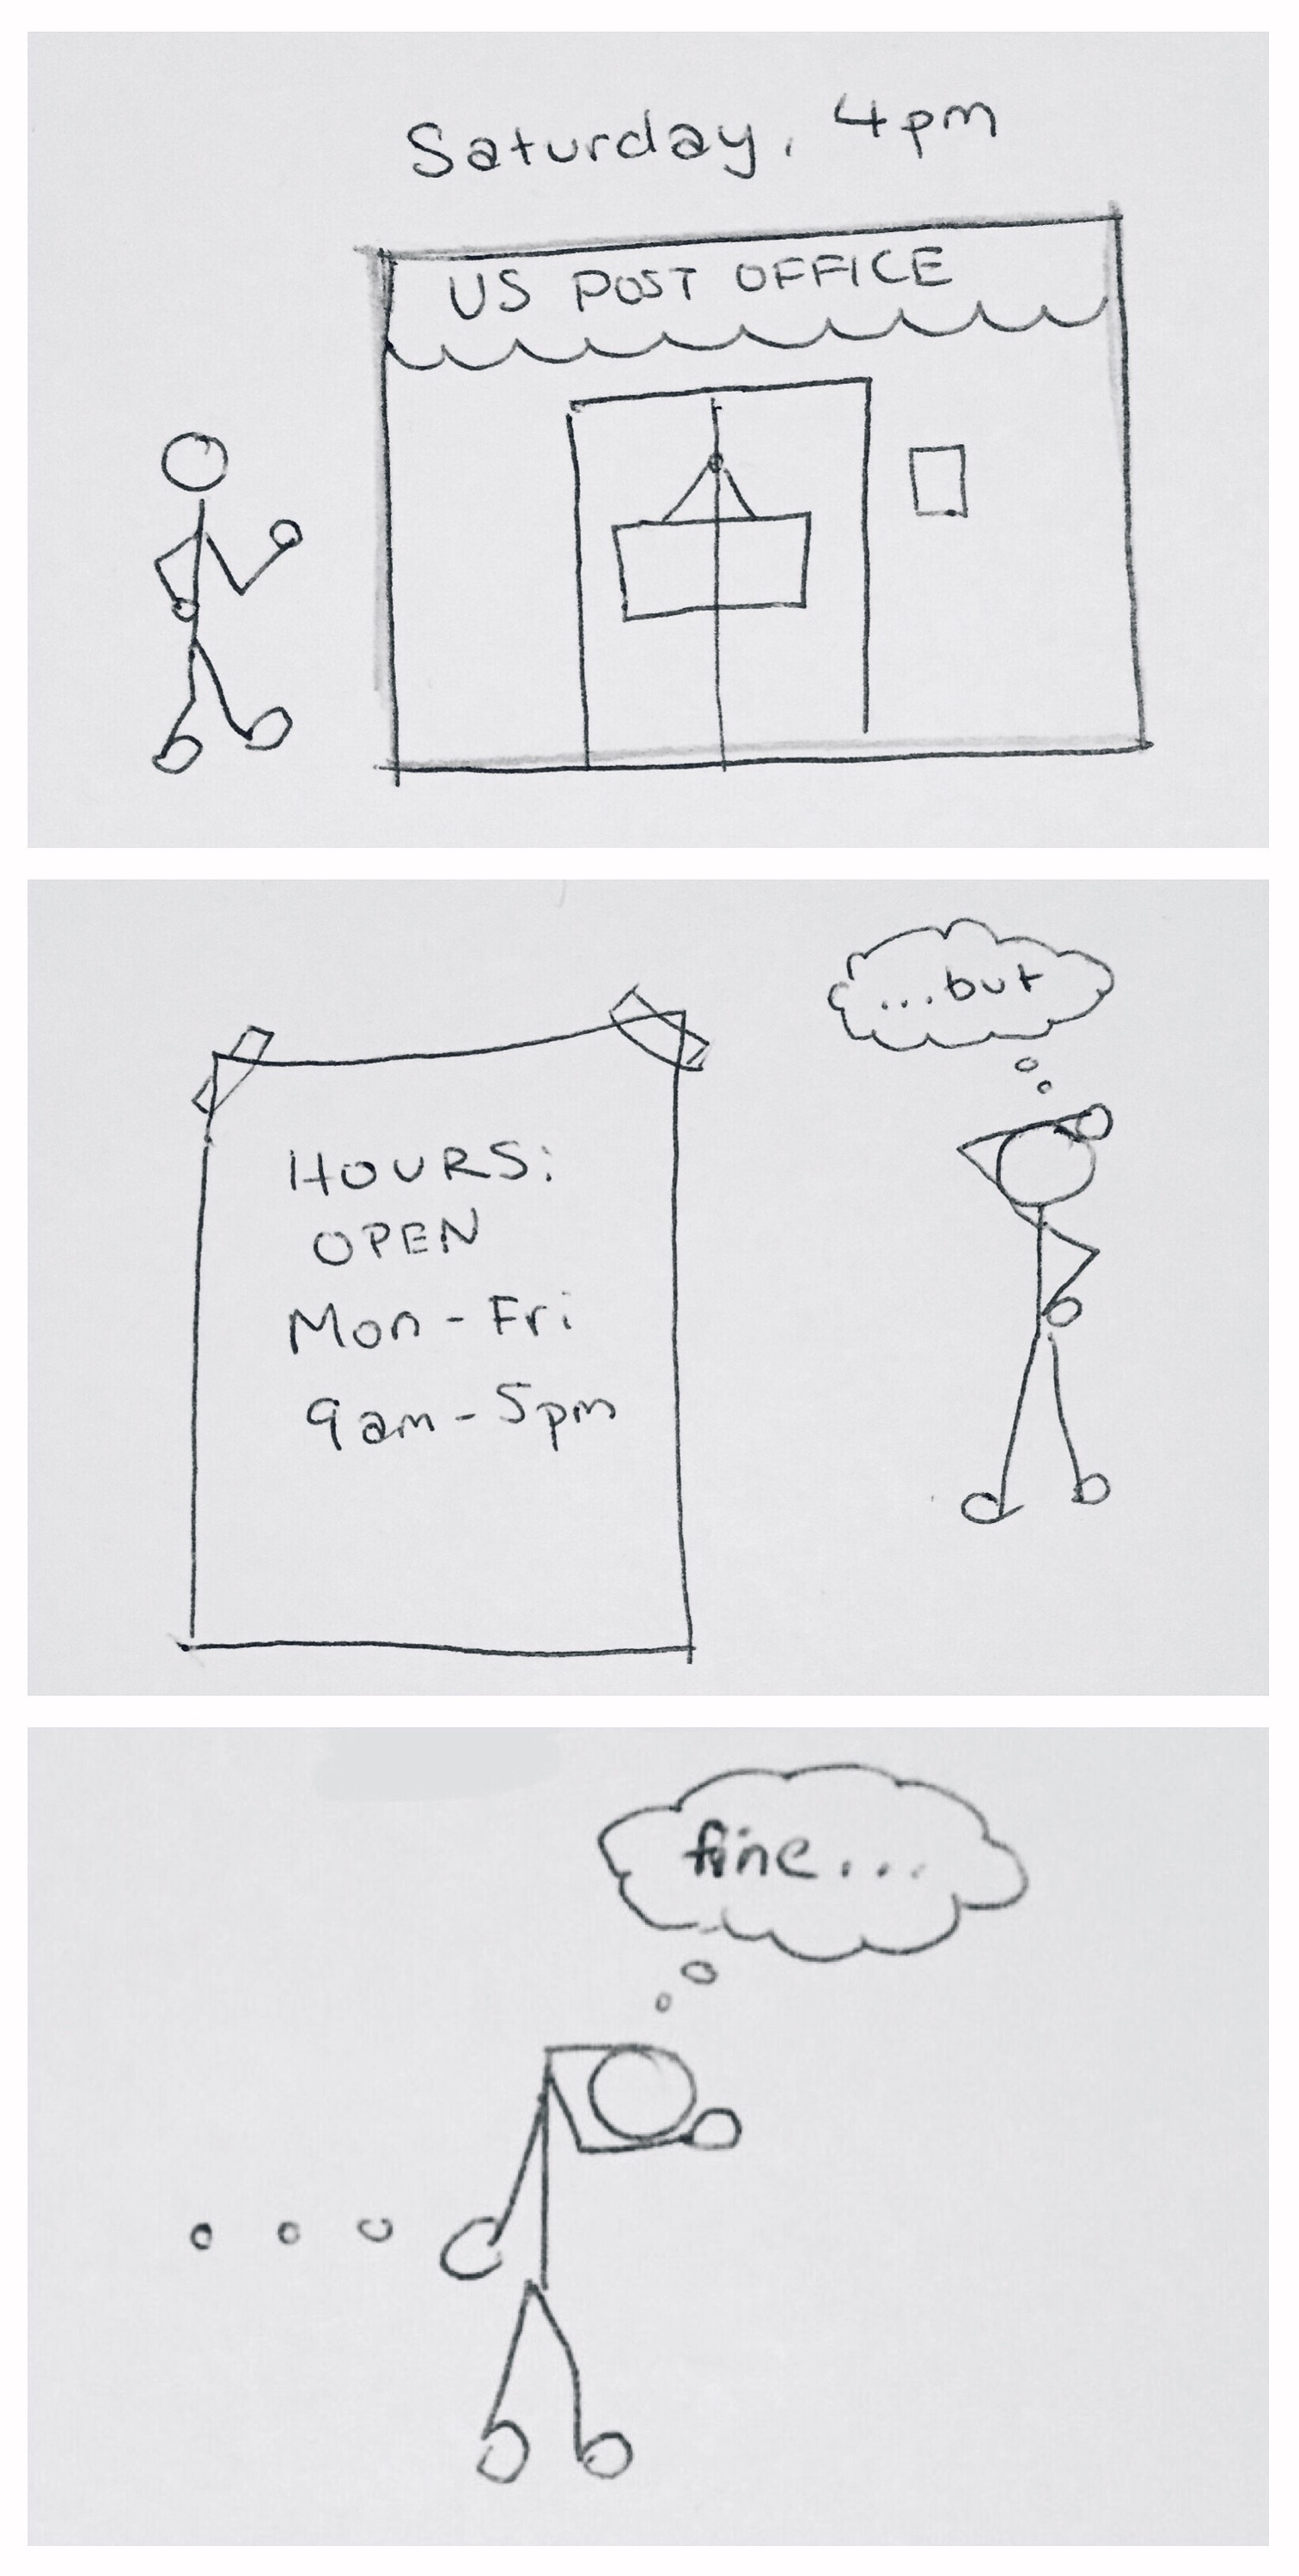 Saturday, 4pm
US POST OFFICE
...but
HOURS:
OPEN
Mon - Fri
9am - 5pm
fine...